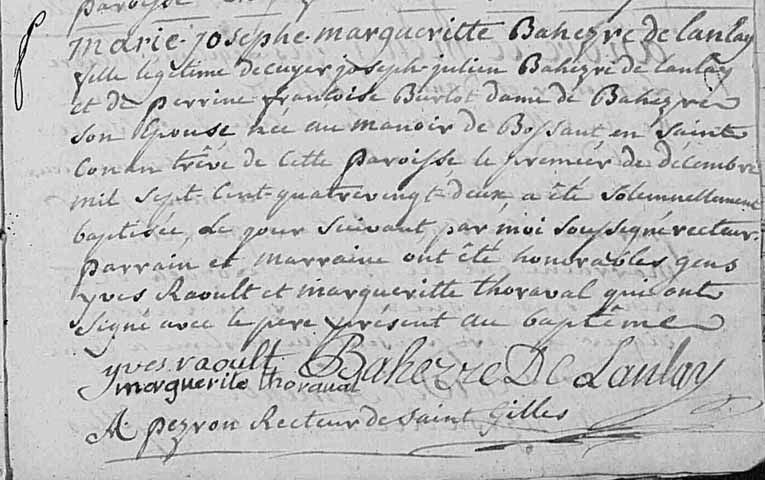 paroisse
marie-josephe-margueritte Bahezre de lanlay
fille legitime decuyer joseph-julien Bahezre de lanlay
et de perrine francoise Burlot dame de Bahezre
son Epouse née au manoir de Bossaut en Saint
Conan trêve de Cette paroisse le premier de décembre
mil sept Cent quatrevingt deux a été solemnellement
baptisée Le jour suivant par moi soussigné recteur.
parrain et marraine ont été honorables gens
yves Raoult et margueritte thoraval qui ont
signé avec le pere présent au baptême
yves raoult Bahezre De Lanlay
marguerite thoraval
A. pezron Recteur de saint gilles